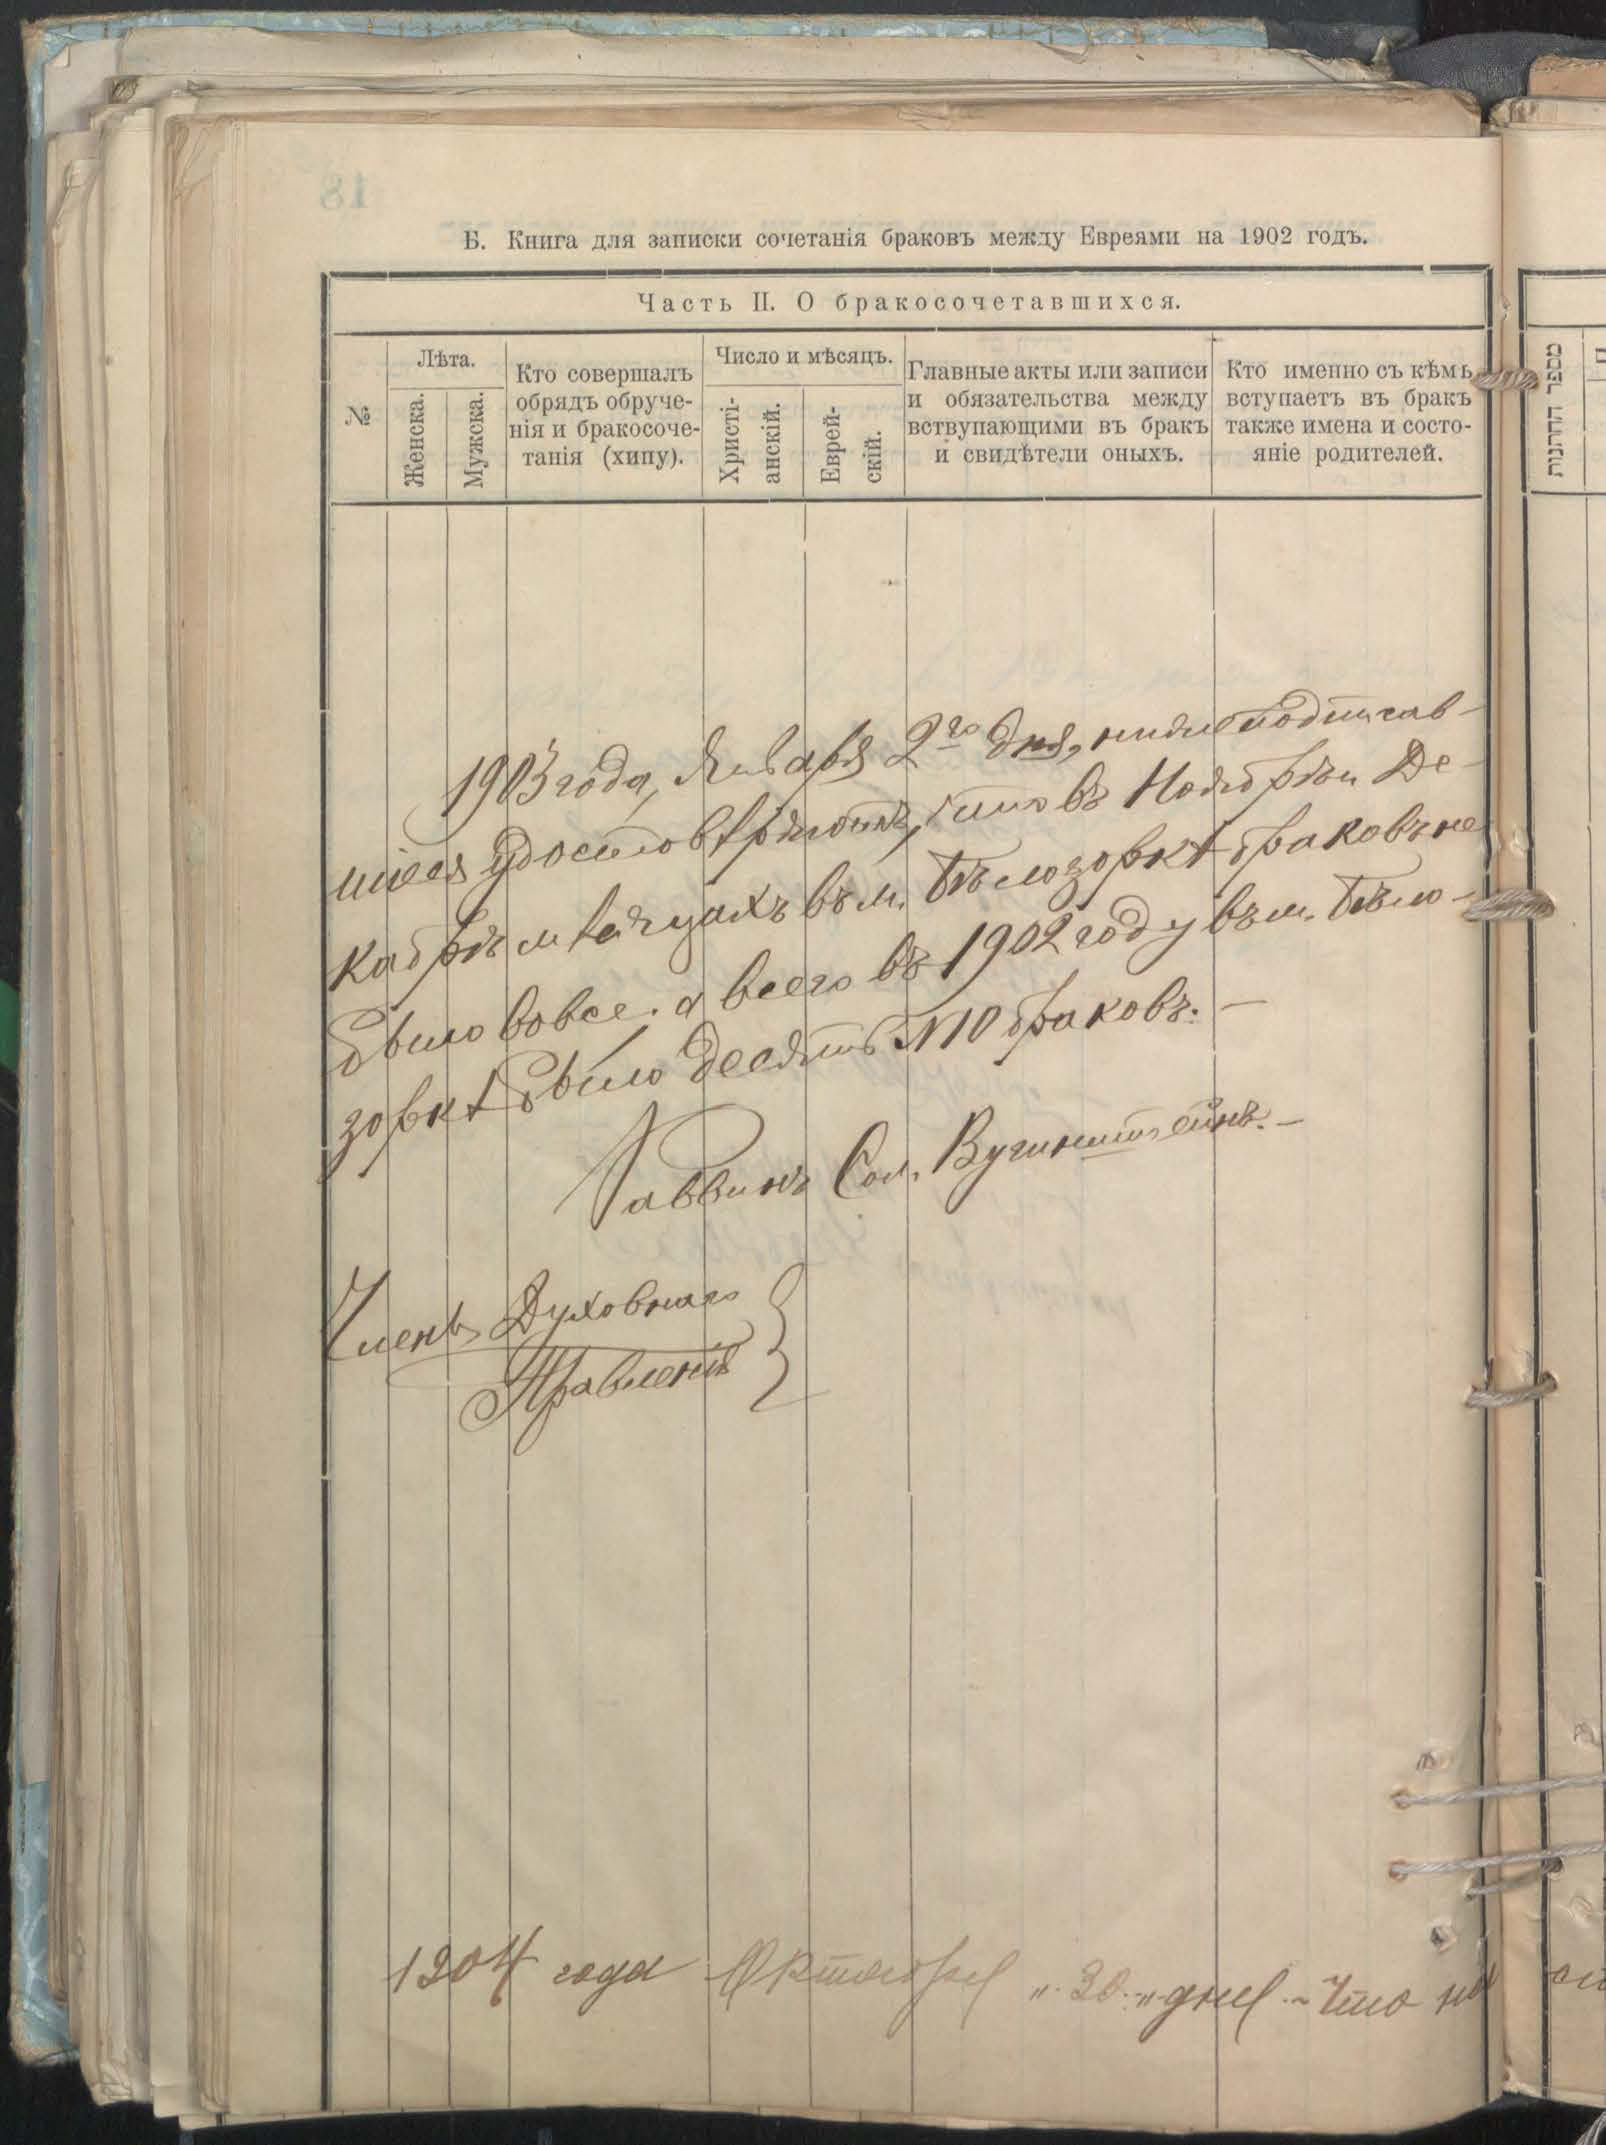 Б. Книга для записки сочетанія браковъ между Евреями на 1902 годъ.
Часть II. О бракосочетавшихся.
№
Лѣта.
Женска.
Мужска.
Кто совершалъ
обрядъ обруче-
нія и бракосоче-
танія (хипу).
Число и мѣсяцъ.
Христі-
анскій.
Еврей-
скій.
Главные акты или записи
и обязательства между
вствупающими въ бракъ
и свидѣтели оныхъ.
Кто именно съ кѣмъ
вступаетъ въ бракъ
также имена и состо-
яніе родителей.
מספר החתונות
1903 года, Января 2го дня, нижеподписав-
шіеся удостовѣряютъ, что въ Ноябрѣ и Де-
кабрѣ мѣсяцахъ въ м. Бѣлозоркѣ браковъ не
было вовсе. а всего въ 1902 году въ м. Бѣло-
зоркѣ было десять №10 браковъ. —
Раввинъ Сол. Вугинштейнъ. —
Членъ Духовнаго
Правленія
1904 года Октября „30„ дня. - Что на